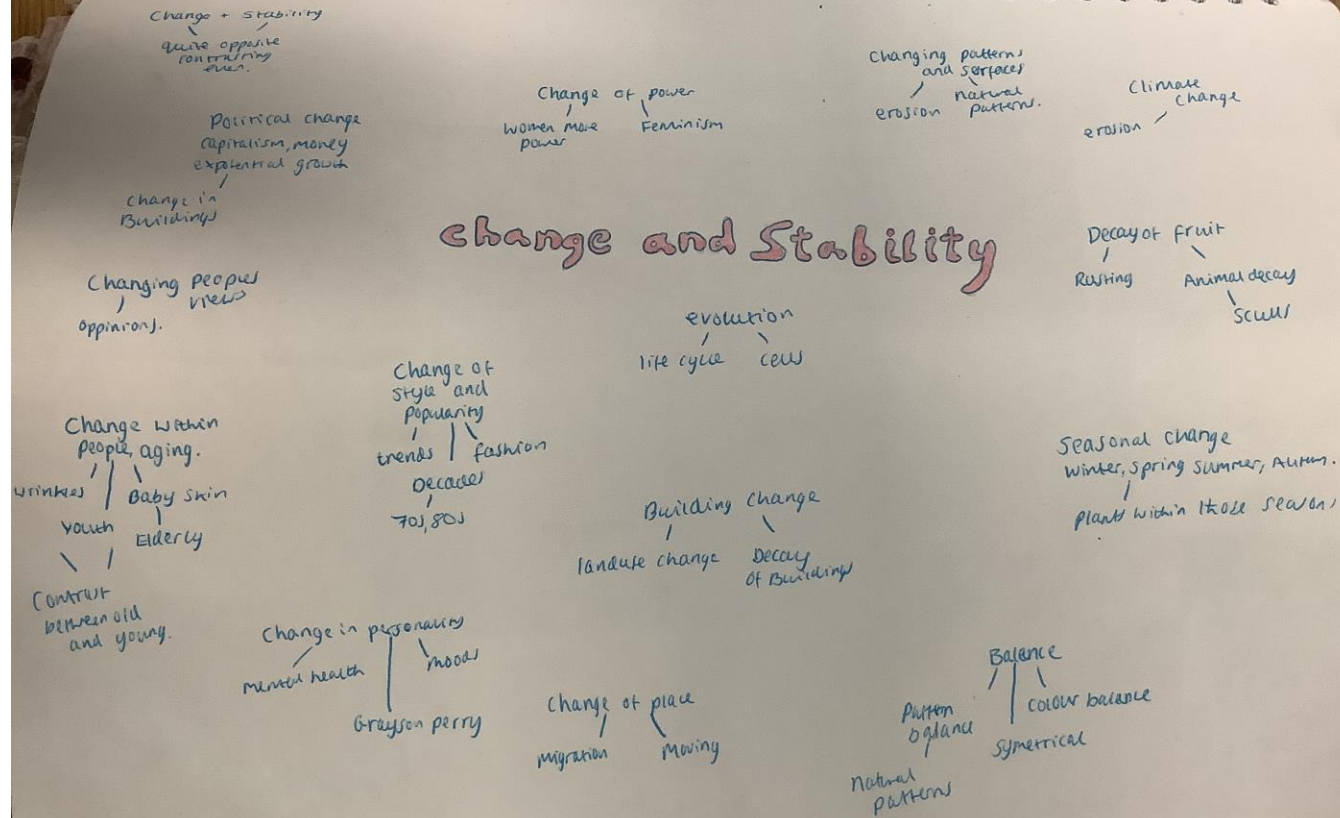 Change + Stability
quite opposite
contrasting
even.
Political change
capitalism, money
expotential growth
Change in
Buildings
Change of power
women more
power
Feminism
Changing patterns
and surfaces
erosion
natural
patterns.
Climate
change
erosion
Change and Stability
Changing peoples
views
oppinions.
Decay of fruit
Rusting
Animal decay
Sculls
evolution
life cycle
cells
Change of
style and
popularity
trends
fashion
Decades
70s, 80s
Change within
people, aging.
wrinkles
Baby skin
youth
Elderly
Contrast
between old
and young.
Seasonal change
winter, spring summer, Autum.
plants within those seasons
Building change
landuse change
Decay
of Buildings
Change in personality
mental health
moods
Grayson perry
Change of place
migration
Moving
Balance
Pattern
balance
colour balance
symetrical
natural
patterns